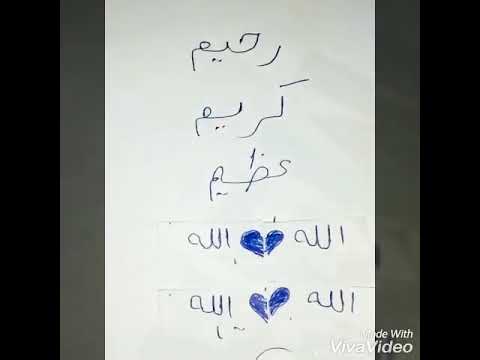 رحيم
كريم
عظيم
الله 💙 الله
الله 💙 الله
Made With
VivaVideo